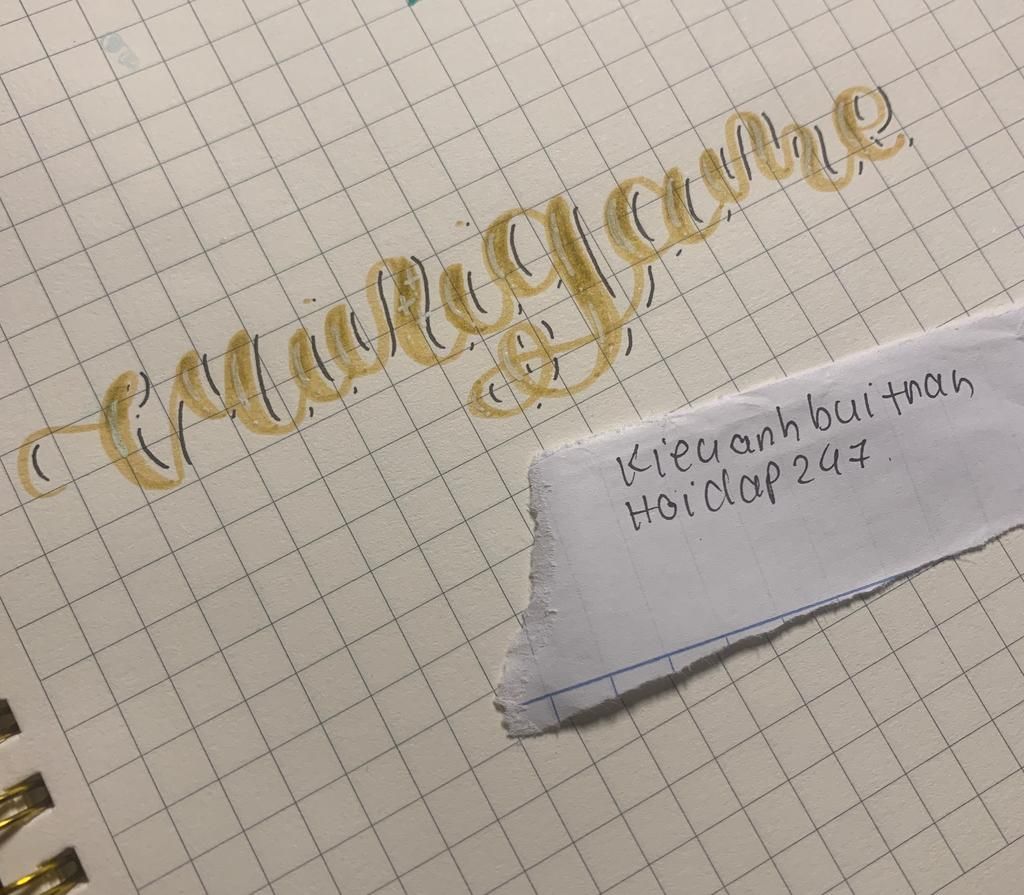 Minigame
Kieuanhbuitran
Hoidap247.